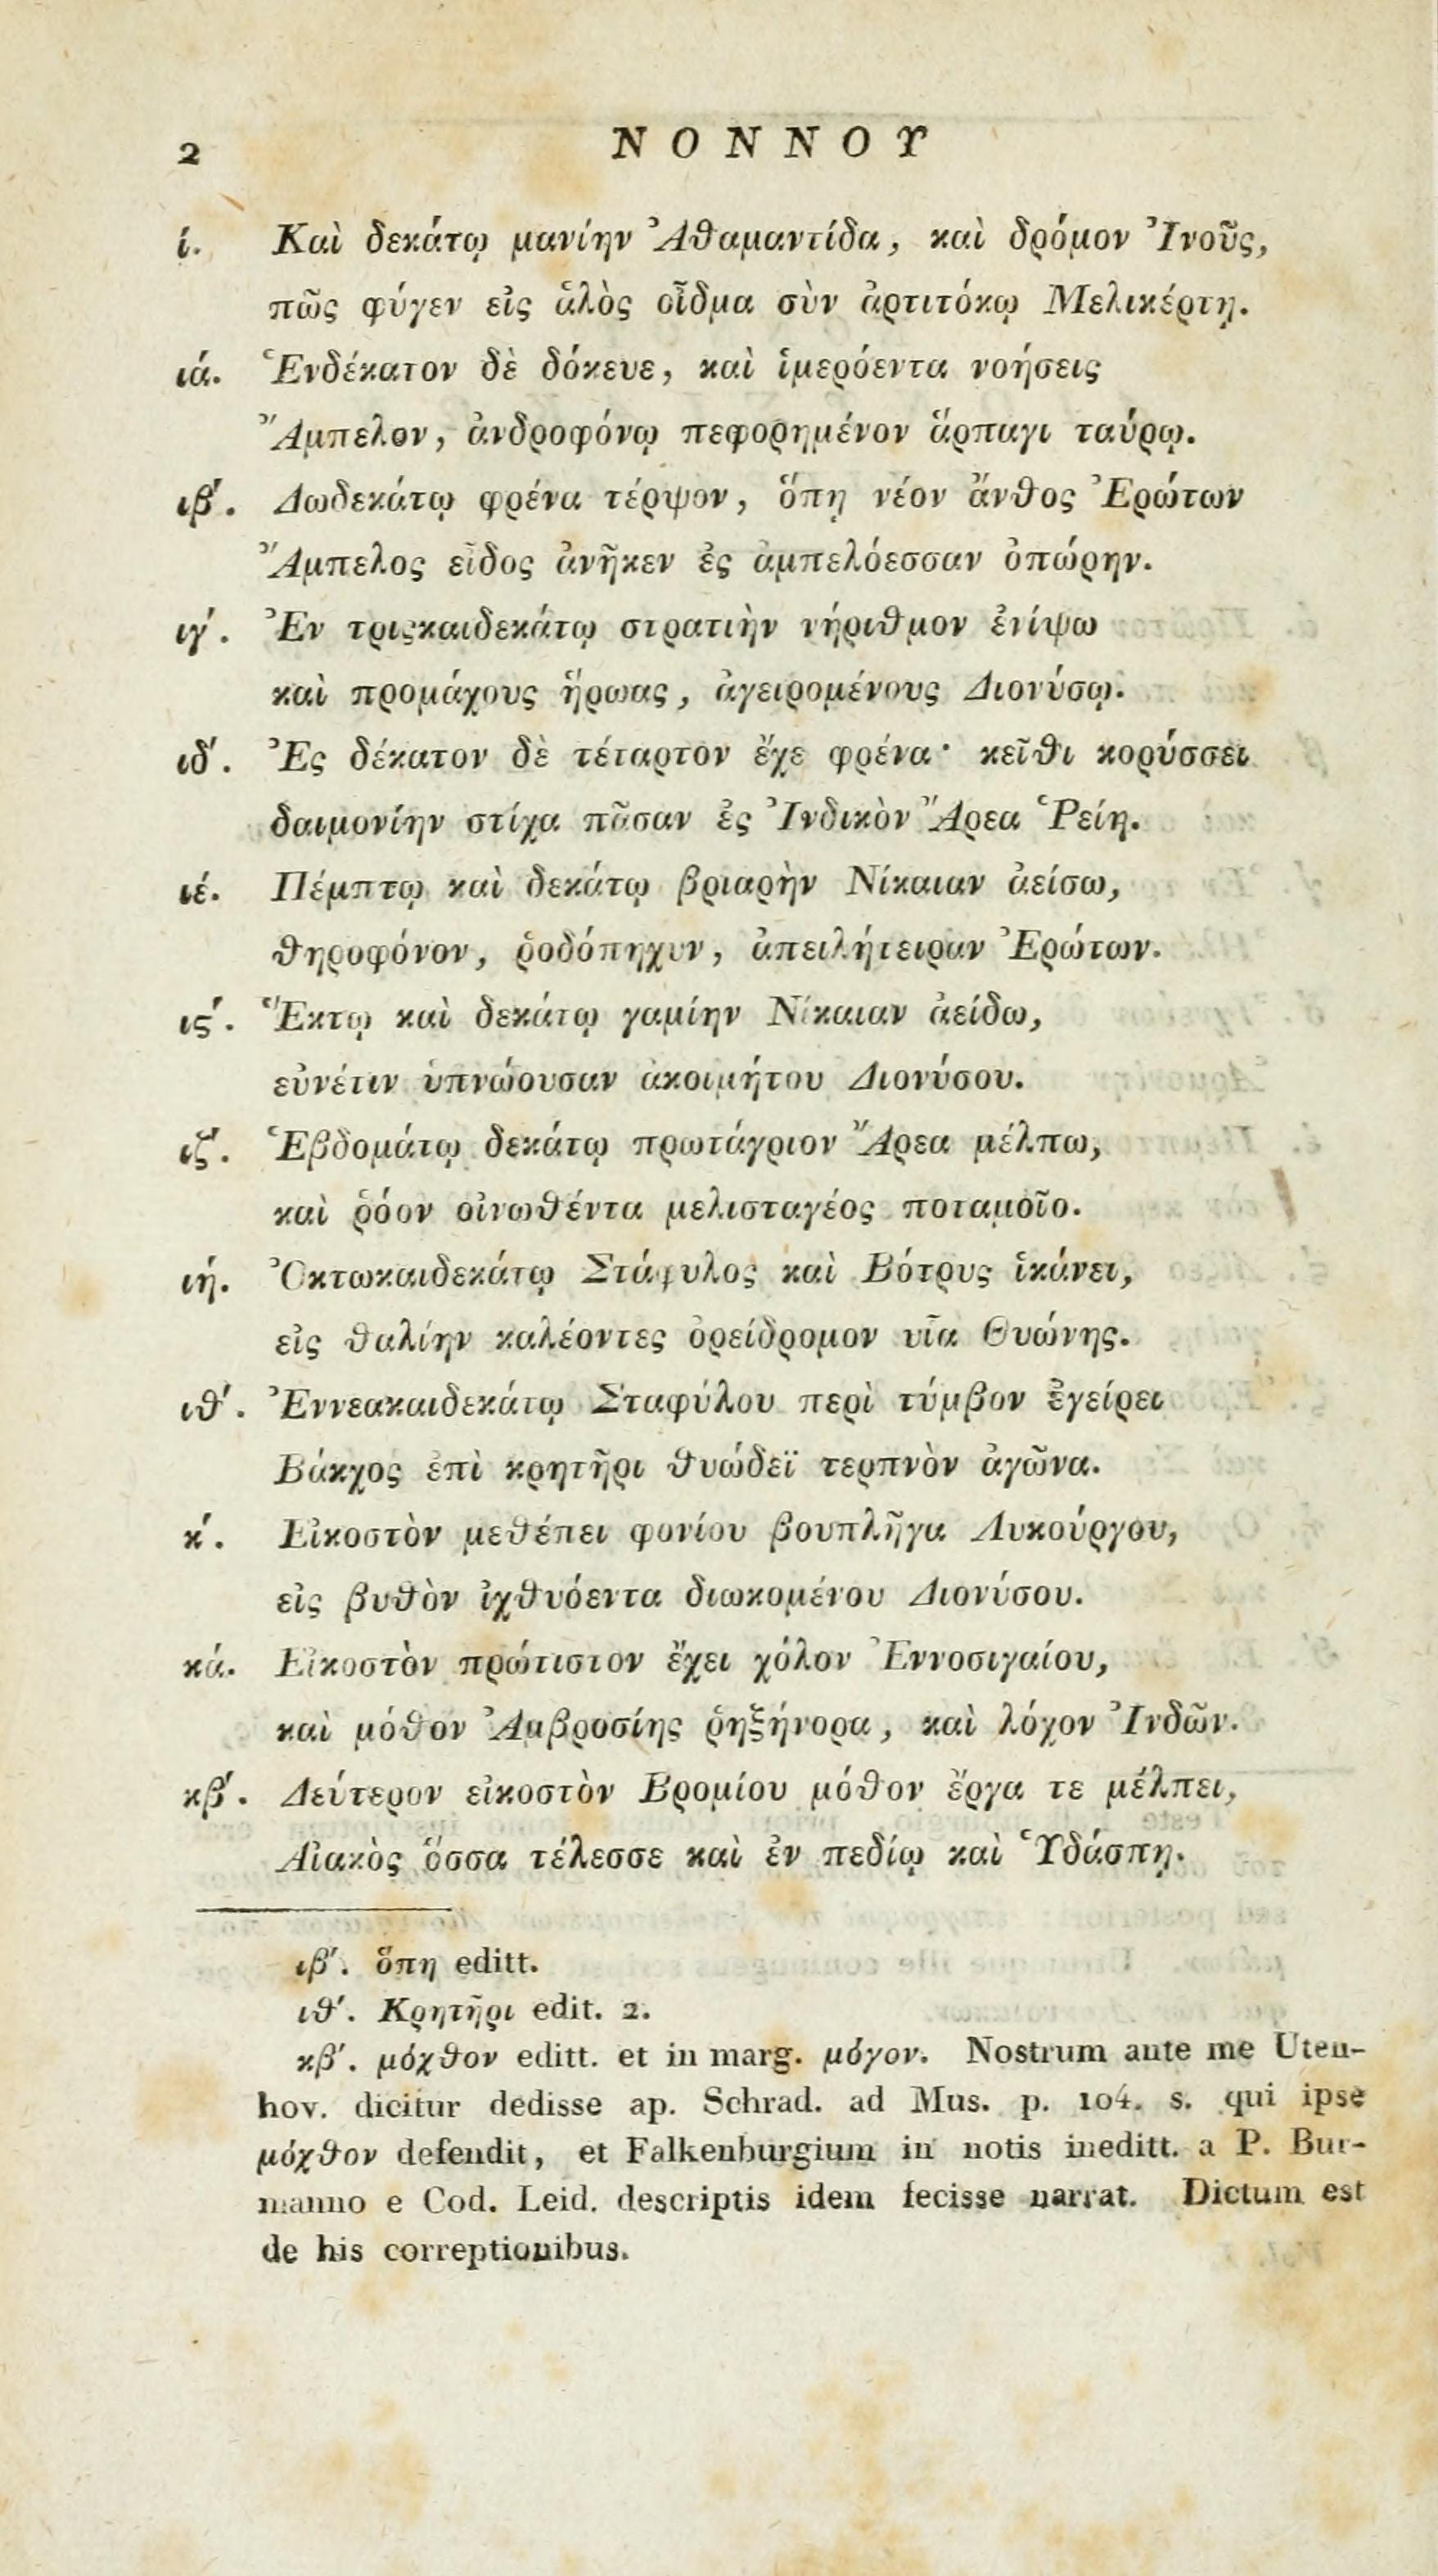 2 ΝΟΝΝΟΥ
ί. Καὶ δεκάτῳ μανίην Ἀθαμαντίδα, καὶ δρόμον Ἰνοῦς,
πῶς φύγεν εἰς ἁλὸς οἶδμα σὺν ἀρτιτόκῳ Μελικέρτῃ.
ιά. Ἑνδέκατον δὲ δόκευε, καὶ ἱμερόεντα νοήσεις
Ἄμπελον, ἀνδροφόνῳ πεφορημένον ἅρπαγι ταύρῳ.
ιβ΄. Δωδεκάτῳ φρένα τέρψον, ὅπῃ νέον ἄνθος Ἐρώτων
Ἄμπελος εἶδος ἀνῆκεν ἐς ἀμπελόεσσαν ὀπώρην.
ιγ΄. Ἐν τριςκαιδεκάτῳ στρατιὴν νήριθμον ἐνίψω
καὶ προμάχους ἥρωας, ἀγειρομένους Διονύσῳ.
ιδ΄. Ἐς δέκατον δὲ τέταρτον ἔχε φρένα· κεῖθι κορύσσει
δαιμονίην στίχα πᾶσαν ἐς Ἰνδικὸν Ἄρεα Ῥείη.
ιέ. Πέμπτῳ καὶ δεκάτῳ βριαρὴν Νίκαιαν ἀείσω,
θηροφόνον, ῥοδόπηχυν, ἀπειλήτειραν Ἐρώτων.
ις΄. Ἕκτῳ καὶ δεκάτῳ γαμίην Νίκαιαν ἀείδω,
εὐνέτιν ὑπνώουσαν ἀκοιμήτου Διονύσου.
ιζ΄. Ἑβδομάτῳ δεκάτῳ πρωτάγριον Ἄρεα μέλπω,
καὶ ῥόον οἰνωθέντα μελισταγέος ποταμοῖο.
ιή. Ὀκτωκαιδεκάτῳ Στάφυλος καὶ Βότρυς ἱκάνει,
εἰς θαλίην καλέοντες ὀρείδρομον υἷα Θυώνης.
ιθ΄. Ἐννεακαιδεκάτῳ Σταφύλου περὶ τύμβον ἐγείρει
Βάκχος ἐπὶ κρητῆρι θυώδεϊ τερπνὸν ἀγῶνα.
κ΄. Εἰκοστὸν μεθέπει φονίου βουπλῆγα Λυκούργου,
εἰς βυθὸν ἰχθυόεντα διωκομένου Διονύσου.
κά. Εἰκοστὸν πρώτιστον ἔχει χόλον Ἐννοσιγαίου,
καὶ μόθον Ἀμβροσίης ῥηξήνορα, καὶ λόχον Ἰνδῶν.
κβ΄. Δεύτερον εἰκοστὸν Βρομίου μόθον ἔργα τε μέλπει,
Αἰακὸς ὅσσα τέλεσσε καὶ ἐν πεδίῳ καὶ Ὑδάσπῃ.
ιβ΄. ὅπη editt.
ιθ΄. Κρητῆρι edit. 2.
κβ΄. μόχθον editt. et in marg. μόγον. Nostrum ante me Uten-
hov. dicitur dedisse ap. Schrad. ad Mus. p. 104. s. qui ipse
μόχθον defendit, et Falkenburgium in notis ineditt. a P. Bur-
manno e Cod. Leid. descriptis idem fecisse narrat. Dictum est
de his correptionibus.